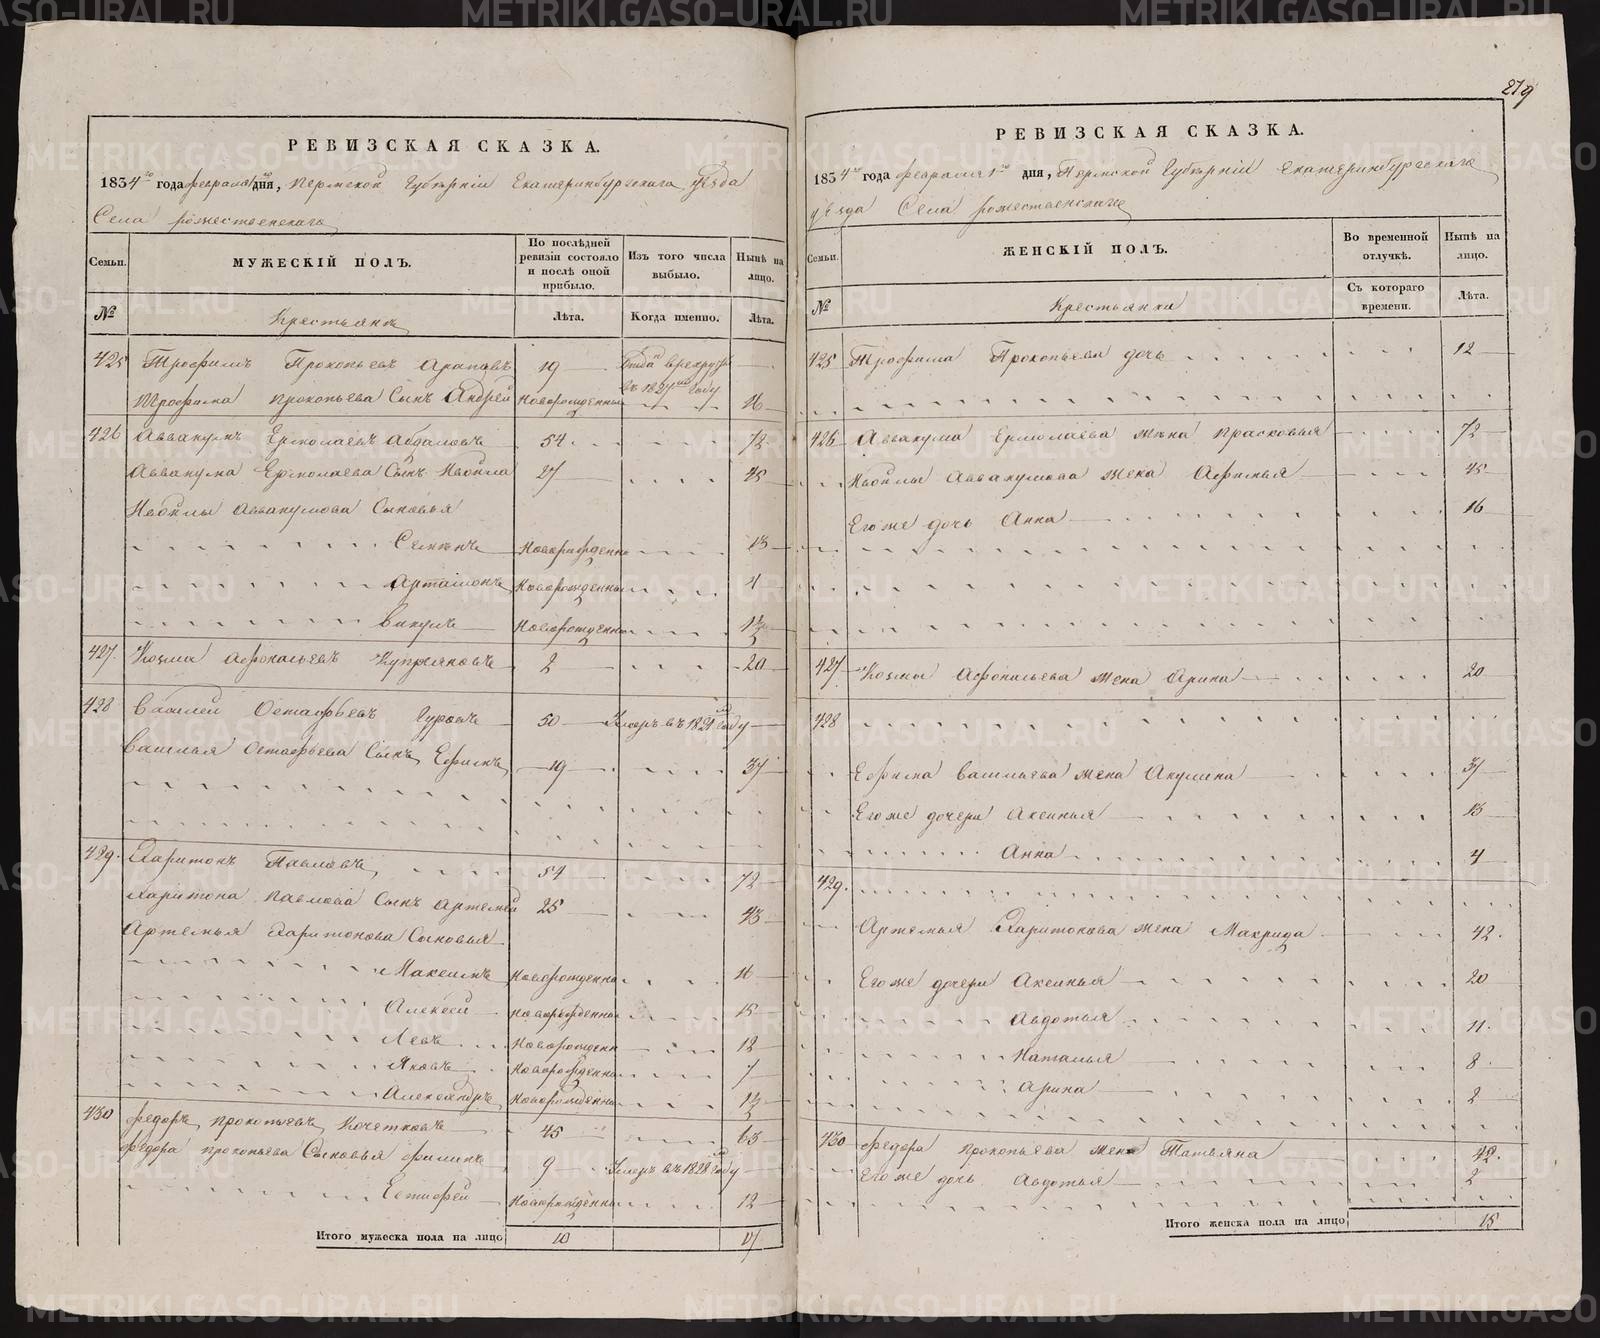 279
РЕВИЗСКАЯ СКАЗКА.
1834 го года февраля 1 го дня, Пермской Губернiи Екатеринбургскаго уѣзда
Села рожественскаго
Семьи. МУЖЕСКІЙ ПОЛЪ. По послѣдней ревизіи состояло и послѣ оной прибыло. Изъ того числа выбыло. Нынѣ на лицо.
№ Крестьянъ Лѣта. Когда именно. Лѣта.
425 Трофимъ Прокопьевъ 19 въ рекруты въ 1827 году
Трофима прокопьева Сынъ Андрей Новорожденный 16
426 Аввакумъ Ермолаевъ 54 72
Аввакума Ермолаева Сынъ 27 45
Аввакумова Сыновья
Семенъ Новорожденный 13
Артамонъ Новорожденный 4
Викулъ Новорожденный
427. Козма Афонасьевъ Купрѣяновъ 2 20
428 Василей Остафьевъ Гурьевъ 50 Умеръ въ 1821 году
Василья Остафьева Сынъ Ефимъ 19 37
429. Харитонъ Павловъ 54 72
Харитона Павлова Сынъ Артемей 25 43
Артемья Харитонова Сыновья
Максимъ Новорожденный 16
Алексей Новорожденный 15
Левъ Новорожденный 12
Яковъ Новорожденный 7
Александръ Новорожденный
430 Федоръ прокопьевъ Кочетковъ 45 63
Федора прокопьева Сыновья Филипъ 9 Умеръ въ 1828 году
Естифей Новорожденный 12
Итого мужеска пола на лицо 10 17
РЕВИЗСКАЯ СКАЗКА.
1834 го года февраля 1 го дня, Пермской Губернiи Екатеринбургскаго
уѣзда Села рожественскаго
Семьи. ЖЕНСКІЙ ПОЛЪ. Во временной отлучкѣ. Нынѣ на лицо.
№ Крестьянки Съ котораго времени. Лѣта.
425 Трофима Прокопьева дочь 12
426 Аввакума Ермолаева жена прасковья 72
Аввакумова жена Афимья 45
Его же дочь Анна 16
427 Козмы Афонасьева жена Арина 20
428
Ефима Васильева жена Акулина 37
Его же дочери Аксинья 13
Анна 4
429.
Артемья Харитонова жена Макрида 42.
Его же дочери Аксинья 20
Авдотья 11.
Наталья 8
Арина 2
430 Федора прокопьева жена Татьяна 42.
Его же дочь Авдотья 2
Итого женска пола на лицо 15
METRIKI.GASO-URAL.RU